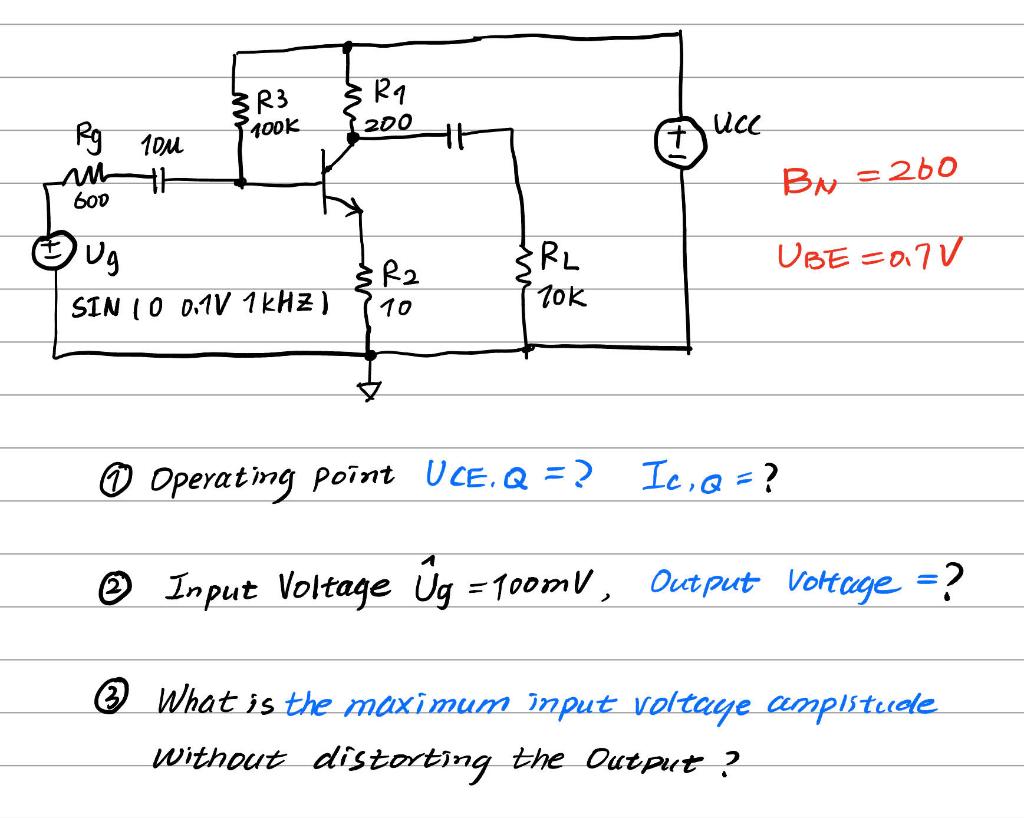 R3
100K
R1
200
Rg
10µ
600
Ucc
BN = 260
UBE = 0.7V
Ug
SIN (0 0.1V 1kHZ)
R2
10
RL
10K
① Operating point UCE.Q = ? Ic,Q = ?
② Input Voltage Ûg = 100mV, Output Voltage = ?
③ What is the maximum input voltage amplitude
Without distorting the Output ?